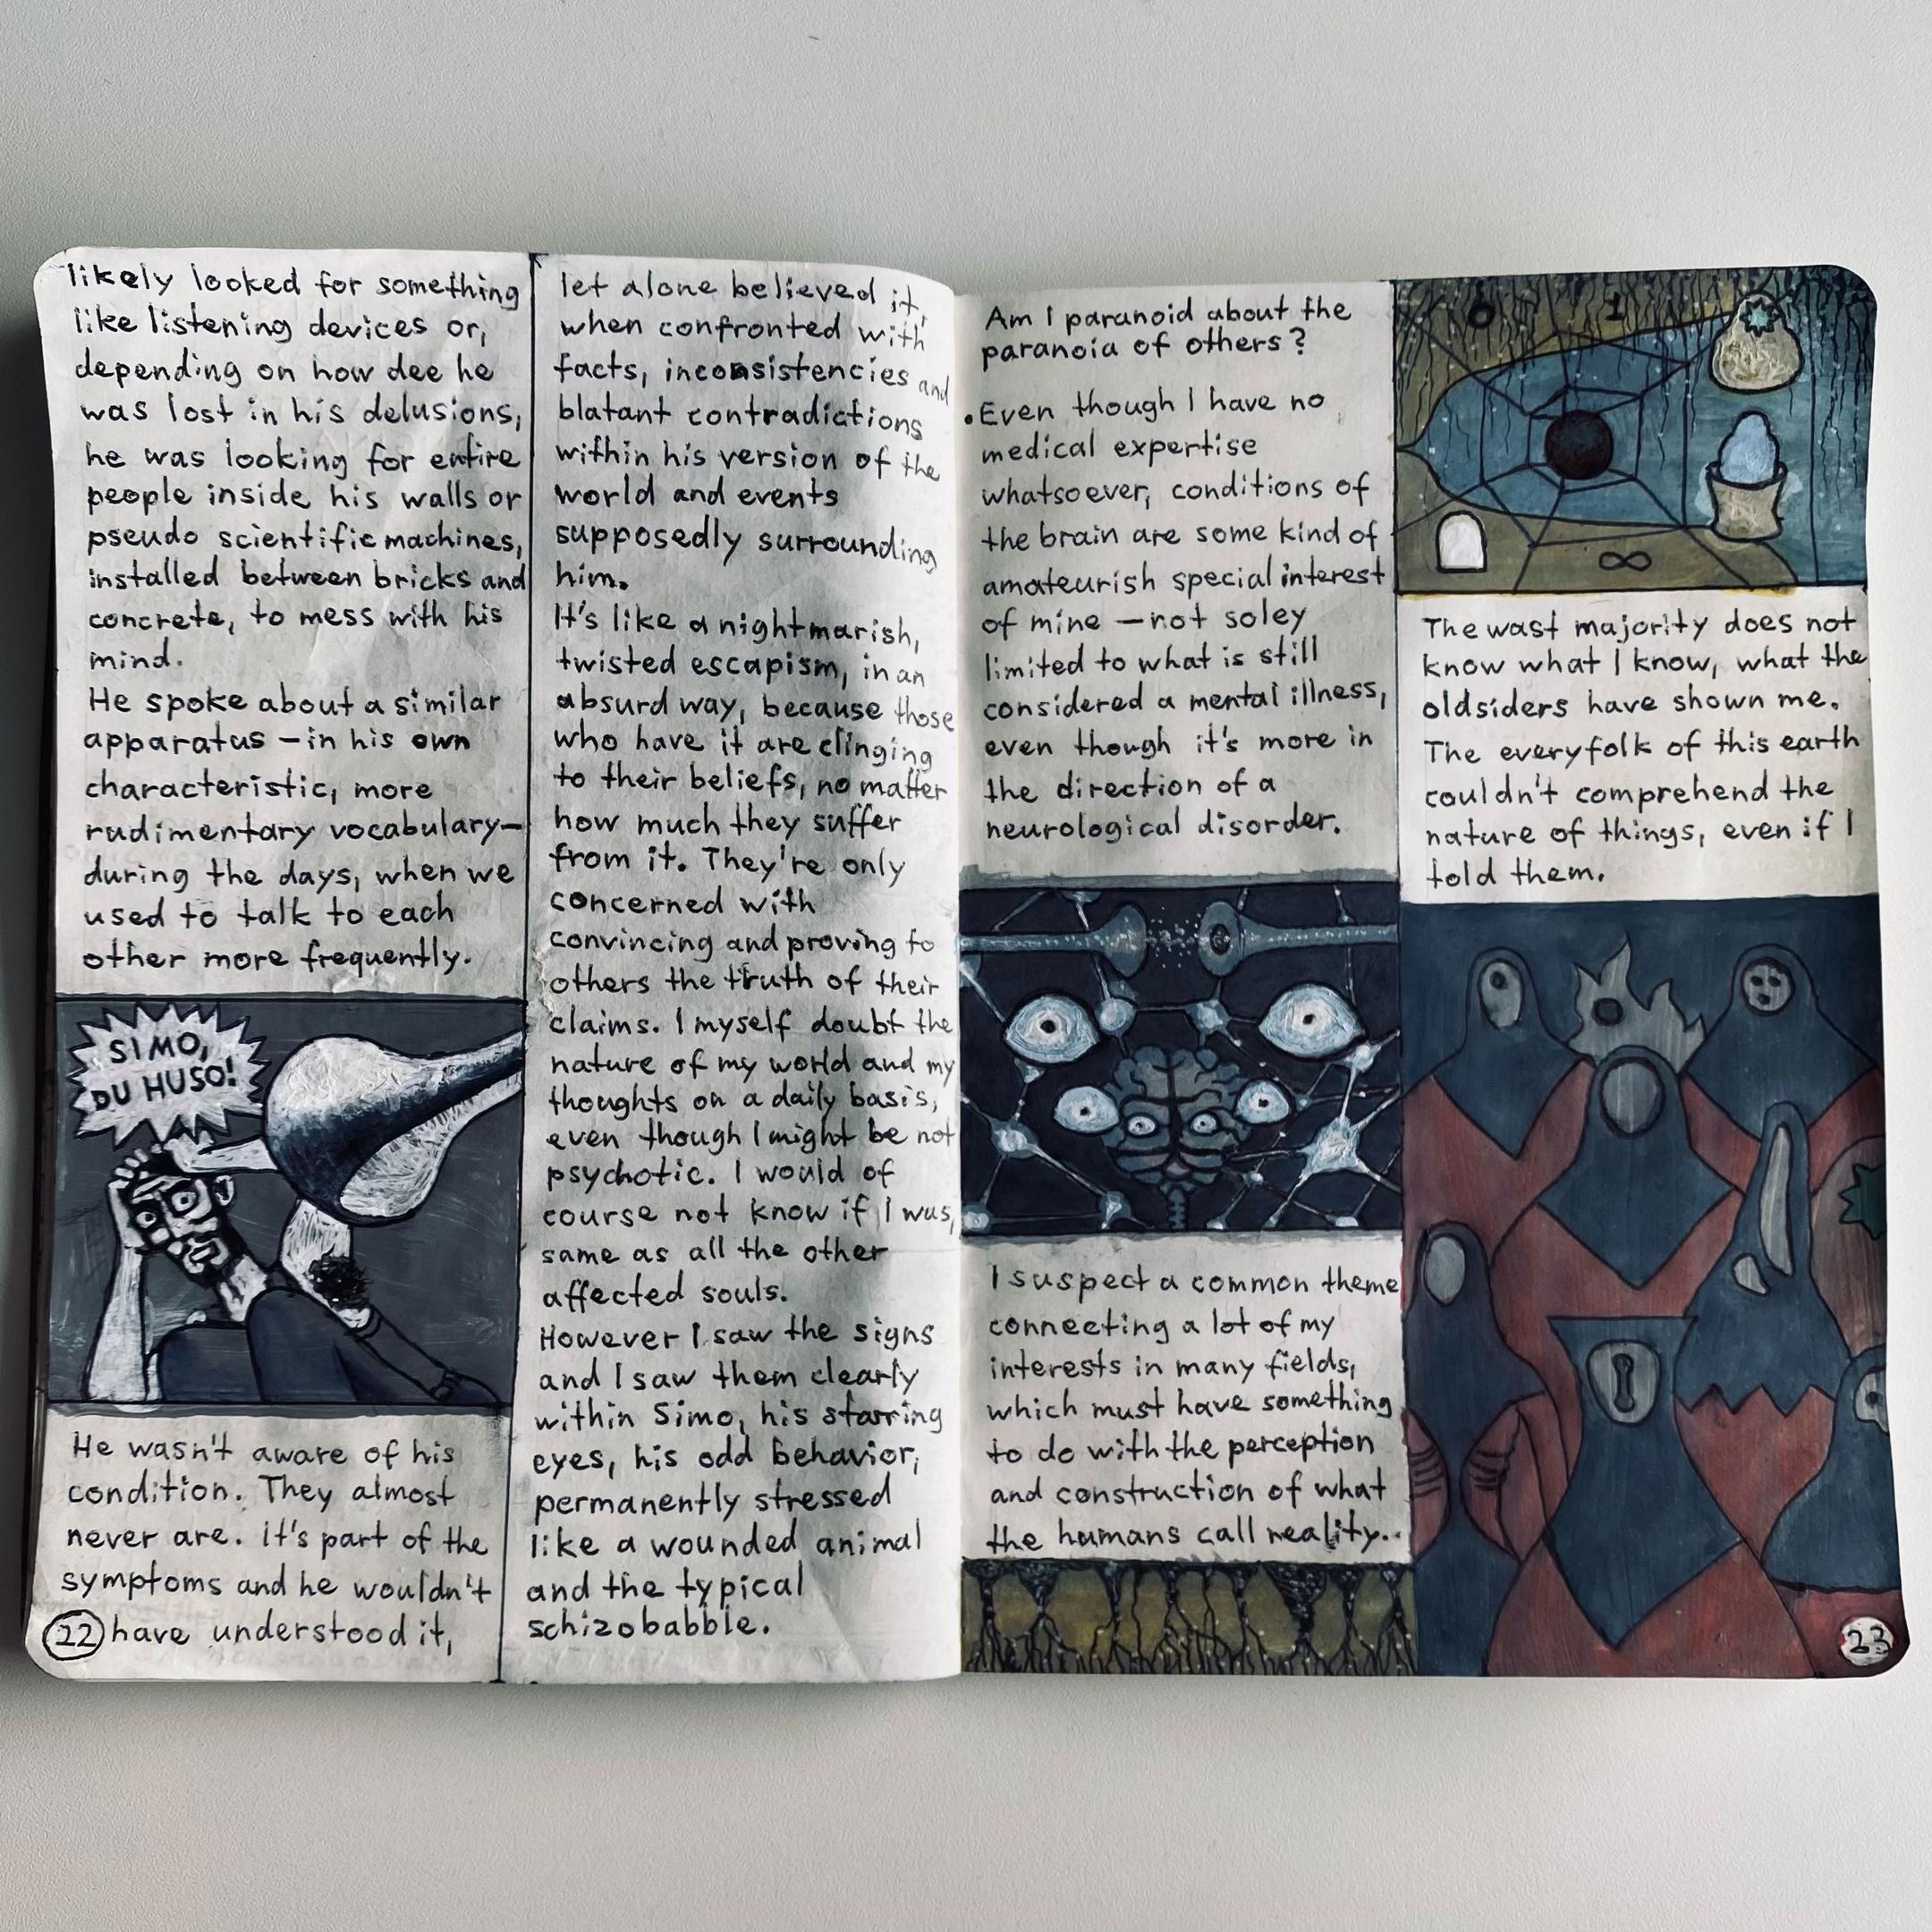 likely looked for something
like listening devices or,
depending on how dee he
was lost in his delusions,
he was looking for entire
people inside his walls or
pseudo scientific machines,
installed between bricks and
concrete, to mess with his
mind.
He spoke about a similar
apparatus – in his own
characteristic, more
rudimentary vocabulary –
during the days, when we
used to talk to each
other more frequently.
SIMO,
DU HUSO!
He wasn't aware of his
condition. They almost
never are. It's part of the
symptoms and he wouldn't
22 have understood it,
let alone believed it,
when confronted with
facts, inconsistencies and
blatant contradictions
within his version of the
world and events
supposedly surrounding
him.
It's like a nightmarish,
twisted escapism, in an
absurd way, because those
who have it are clinging
to their beliefs, no matter
how much they suffer
from it. They're only
concerned with
convincing and proving to
others the truth of their
claims. I myself doubt the
nature of my world and my
thoughts on a daily basis,
even though I might be not
psychotic. I would of
course not know if I was,
same as all the other
affected souls.
However I saw the signs
and I saw them clearly
within Simo, his starring
eyes, his odd behavior,
permanently stressed
like a wounded animal
and the typical
schizobabble.
Am I paranoid about the
paranoia of others?
. Even though I have no
medical expertise
whatsoever, conditions of
the brain are some kind of
amateurish special interest
of mine – not soley
limited to what is still
considered a mental illness,
even though it's more in
the direction of a
neurological disorder.
I suspect a common theme
connecting a lot of my
interests in many fields,
which must have something
to do with the perception
and construction of what
the humans call reality..
0 1
∞
The wast majority does not
know what I know, what the
oldsiders have shown me.
The everyfolk of this earth
couldn't comprehend the
nature of things, even if I
told them.
23